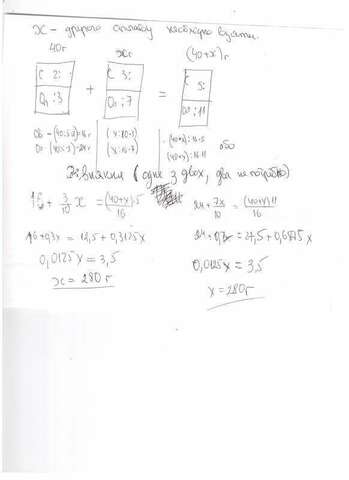 x - другого сплаву необхідно взяти.
40г xг (40+x)г
C 2: C 3: C 5:
Ол :3 + Ол :7 = Ол :11
(40:5·2)=16г (x:10·3) (40+x):16·5
(40:5·3)=24г (x:10·7) (40+x):16·11 або
Рівняння (одне з двох, два не потрібно)
16 + 3/10 x = (40+x)·5/16
24 + 7x/10 = (40+x)11/16
16+0,3x = 12,5 + 0,3125x
0,0125x = 3,5
x = 280г
24+0,7x = 27,5+0,6875x
0,0125x = 3,5
x = 280г